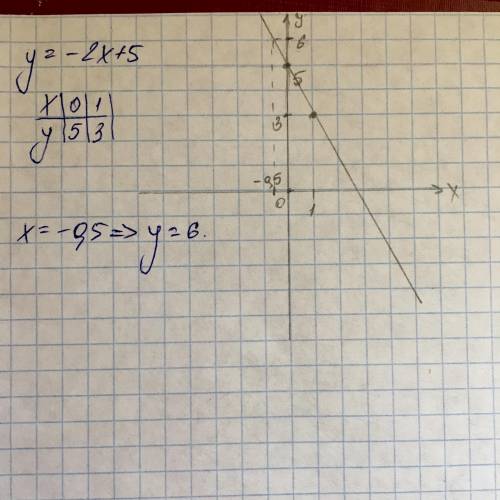 y = -2x+5
x | 0 | 1
y | 5 | 3
x = -0,5 => y = 6.
y
6
5
3
-0,5
0
1
x